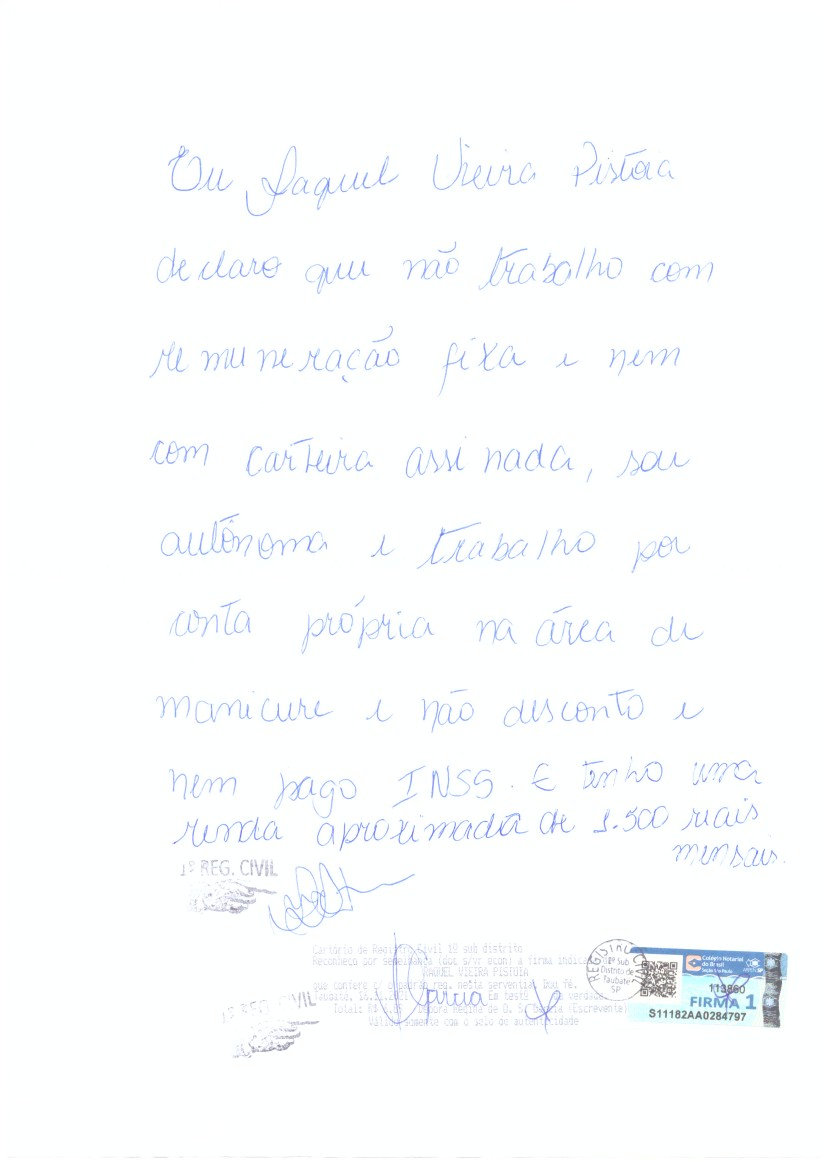 Eu Raquel Vieira Pistóia
declaro que não trabalho com
remuneração fixa e nem
com carteira assinada, sou
autônoma e trabalho por
conta própria na área de
manicure e não desconto e
nem pago INSS. E tenho uma
renda aproximada de 1.500 reais
mensais.
1º REG. CIVIL
Cartório de Registro Civil 1º sub distrito
Reconheço por semelhança (doc s/v econ) a firma indicada
RAQUEL VIEIRA PISTOIA
que confere c/ padrão reg. nesta serventia. Dou fé.
Taubaté, Em test da verdade
Total: R$ Regina de O. S. (Escrevente)
Válido somente com o selo de autenticidade
1º REG. CIVIL
REGISTRO CIVIL
1º Sub
Distrito de
Taubaté
SP
Colégio Notarial
do Brasil
Seção São Paulo
113860
FIRMA 1
S11182AA0284797